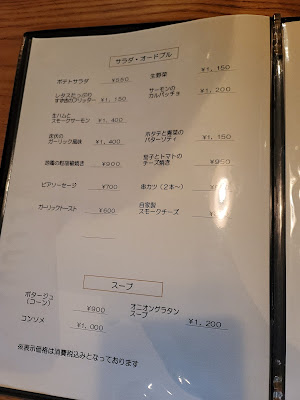 サラダ・オードブル
ポテトサラダ ¥550
生野菜 ¥1,150
レタスたっぷり
¥1,150
サーモンの
カルパッチョ ¥1,200
生ハムと
スモークサーモン ¥1,400
ガーリック風味 ¥1,400
ホタテと青菜の
バターソティ ¥1,150
¥900
茄子とトマトの
チーズ焼き ¥950
ビアソーセージ ¥700
串カツ(2本~)
ガーリックトースト ¥600
自家製
スモークチーズ
スープ
ポタージュ
(コーン) ¥900
オニオングラタン
スープ ¥1,200
コンソメ ¥1,000
※表示価格は消費税込みとなっております